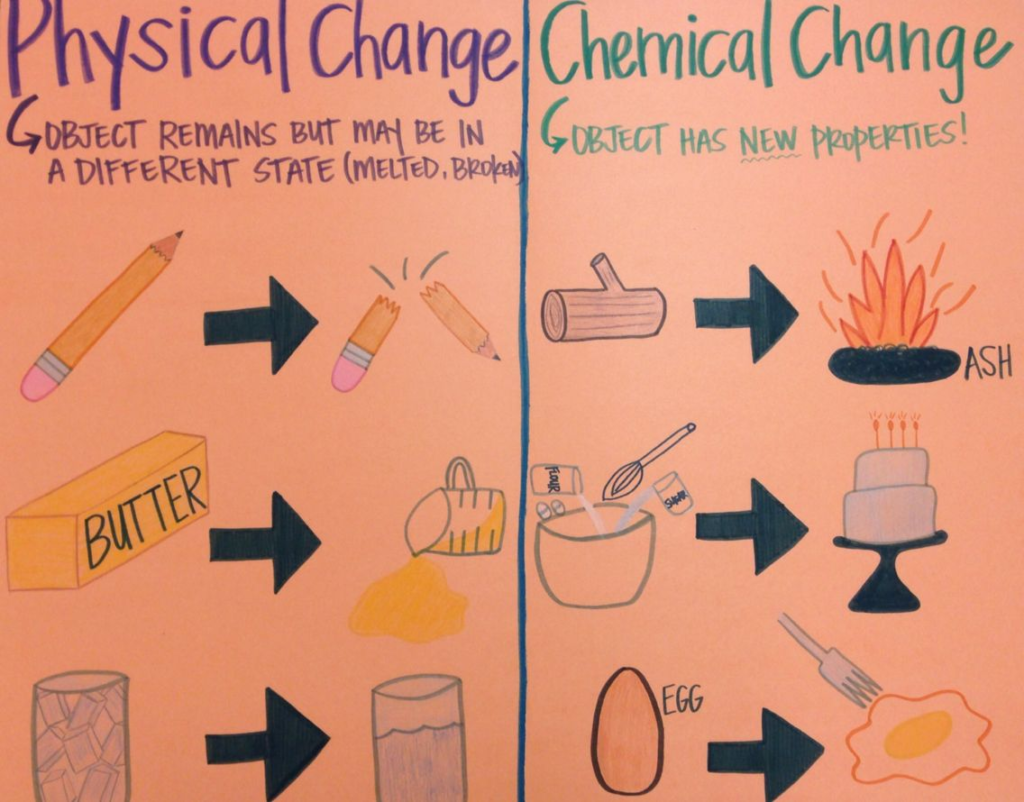 Physical Change
OBJECT REMAINS BUT MAY BE IN
A DIFFERENT STATE (MELTED, BROKEN)
BUTTER
Chemical Change
OBJECT HAS NEW PROPERTIES!
ASH
FLOUR
SUGAR
EGG